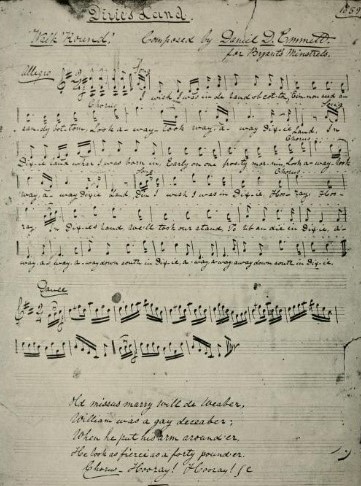 Dixie's Land. 1859
"Walk 'Round." Composed by Daniel D. Emmett.
for Bryant's Minstrels.
Allegro
I wish I was in de land ob cotton,
Chorus
can-dy bot-tom, Look a-way - look a-way - a-way Dix-ie Land. In
Dix-ie Land whar I was born in, Early on one frosty mornin, Look a-way - look
Chorus
way. a-way Dixie Land. Den I wish I was in Dix-ie. Hoo-ray - Hoo-
ray. In Dixie's Land We'll took our stand, To lib an die in Dix-ie. a-
way. a-way. a-way down south in Dix-ie. a-way. a-way. a-way down south in Dix-ie.
Dance
Old missus marry will de weaber,
William was a gay deceaber;
When he put his arm around er.
He look as fierce as a forty pounder.
Chorus - Hooray! Hooray! &c